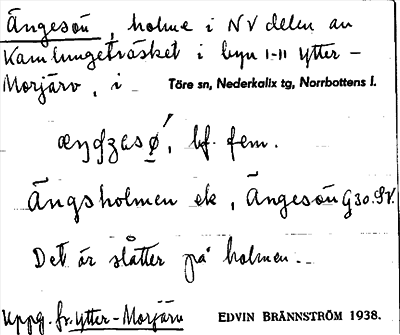 Ängesön, holme i NV delen av
Kamlungeträsket i byn 1-11 Ytter-
Morjärv, i Töre sn, Nederkalix tg, Norrbottens l.
bf. fem.
Ängsholmen ek, Ängesön G30.SV.
Det är slåtter på holmen.-
Uppg. fr. Ytter-Morjärv
EDVIN BRÄNNSTRÖM 1938.